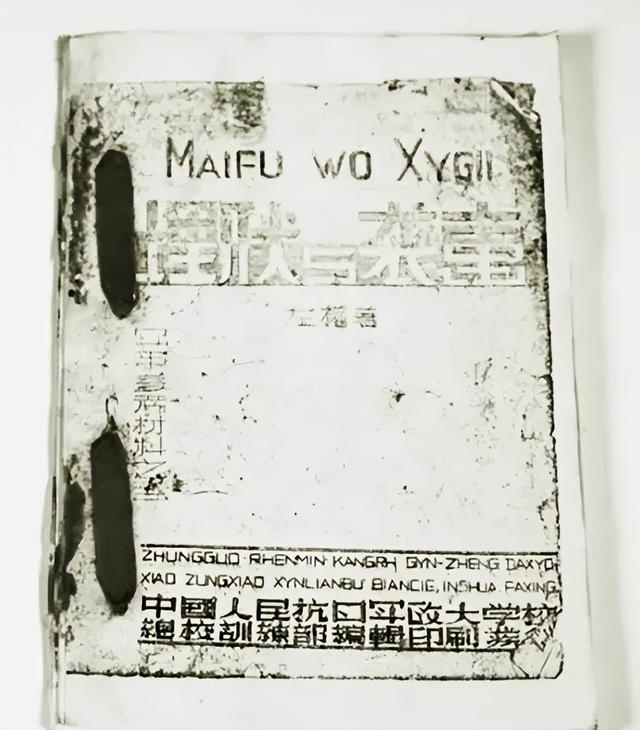 MAIFU WO XYGII
埋伏与袭击
左权著
参考材料之
ZHUNGGUO RHENMIN KANGRH GYN-ZHENG DAXYO
XIAO ZUNGXIAO XYNLIANBU BIANCIE, INSHUA. FAXING
中國人民抗日军政大学校
總校訓練部編輯印刷發行